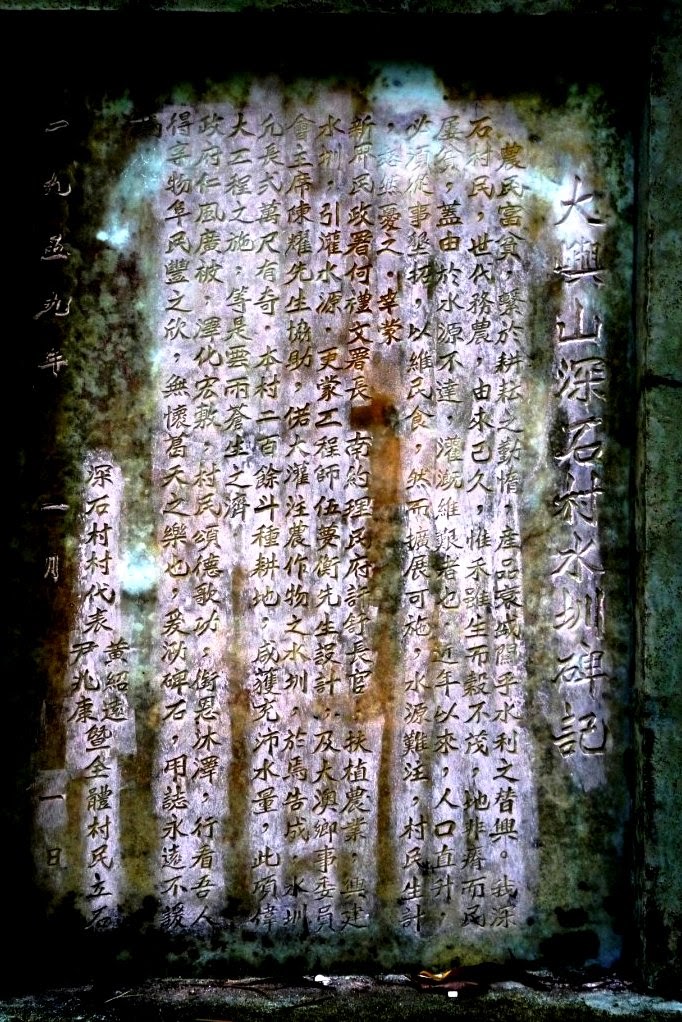 大興山深石村水圳碑記
農民富貧，繫於耕耘之勤惰，產品衰盛關乎水利之替興。我深
石村民，世代務農，由來已久，惟禾雖生而穀不茂，地非瘠而民
屢貧，蓋由於水源不達，灌溉維艱者也，近年以來，人口直升，
必須從事墾拓，以維民食，然而擴展可施，水源難注，村民生計
，憂之，幸蒙
新界民政署何禮文署長，南約理民府許舒長官，扶植農業，興建
水圳，引灌水源，更蒙工程師伍蔓衡先生設計，及大澳鄉事委員
會主席陳耀先生協助，偌大灌注農作物之水圳，於焉告成，水圳
允長弍萬尺有奇，本村二百餘斗種耕地，咸獲充沛水量，此項偉
大工程之施，等是無雨蒼生之濟
政府仁風廣被，澤化宏敷，村民頌德歌功，銜恩沐澤，行看吾人
得享物阜民豐之欣，無懷葛天之樂也，爰泐碑石，用誌永遠不諼
深石村村代表 黃紹遠 尹兆康 暨全體村民立石
一九五九年 一月 一日